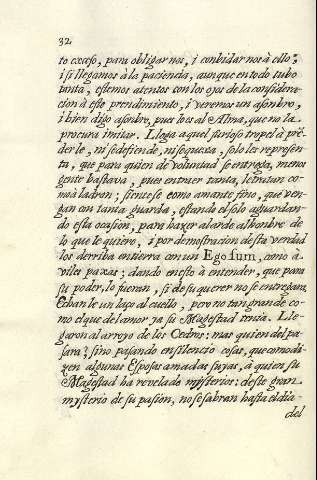 32
to exceso, para obligar nos, i conbidar nos à ello;
i si llegamos à la paciencia, aunque en todo tubo
tanta, estemos atentos con los ojos de la considera-
cion à este prendimiento, i veremos un asonbro,
i bien digo asonbro, pues lo es al Alma, que no la
procura imitar. Llega aquel furioso tropel à prē-
derle, ni se defiende, ni se quexa, solo les represen-
ta, que para quien de voluntad se entrega, menos
gente bastava, pues en traer tanta, le tratan co-
mo à ladron; sientese como amante fino, que ven-
gan con tanta guarda, estando el solo aguardan-
do esta ocasion, para haxer alarde al honbre de
lo que le quiere, i por demostracion desta verdad
los derriba en tierra con un Ego sum, como à
viles paxas; dando en esto à entender, que para
su poder, lo fueran, si de su querer no se entregara,
Echanle un laço al cuello, pero no tan grande co-
mo el que del amor ya su Magestad tenia. Lle-
garon al arroyo de los Cedros: mas quien del pa-
sara; sino pasando en silencio cosas, que como di-
zen algunas Esposas amadas suyas, à quien su
Magestad ha revelado mysterios: deste gran
mysterio de su pasion, no se sabran hasta el dia
del